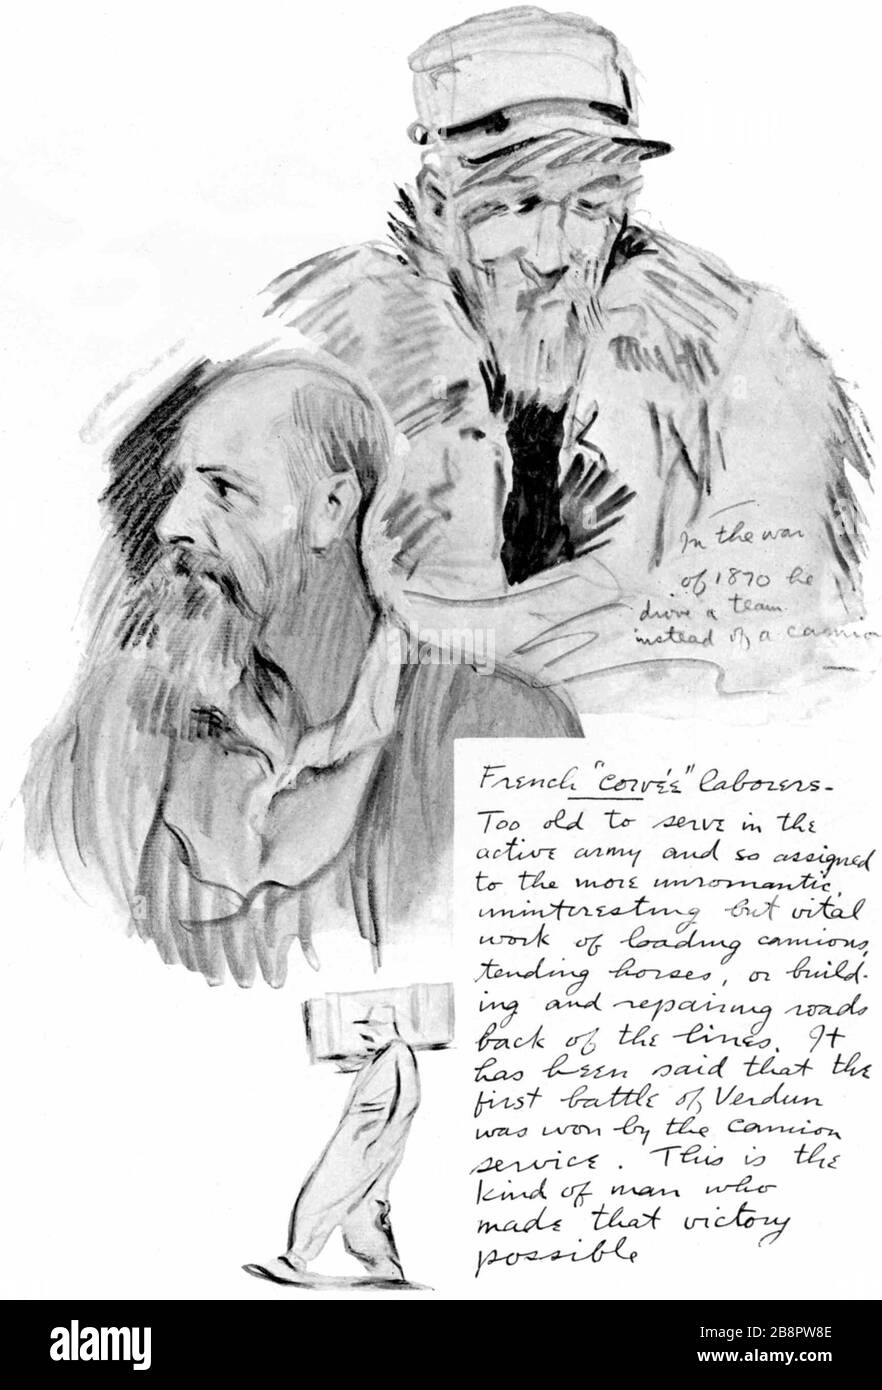 In the war
of 1870 he
drove a team
instead of a camion
French "corvéé" laborers-
Too old to serve in the
active army and so assigned
to the more unromantic,
uninteresting but vital
work of loading camions,
tending horses, or build-
ing and repairing roads
back of the lines. It
has been said that the
first battle of Verdun
was won by the camion
service. This is the
kind of man who
made that victory
possible
a
alamy
Image ID: 2B8PW8E
www.alamy.com